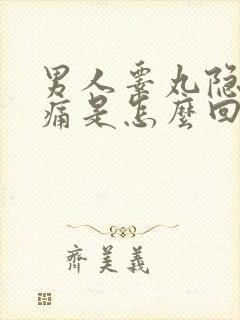 男人睾丸隐
痛是怎麼回
齊美義